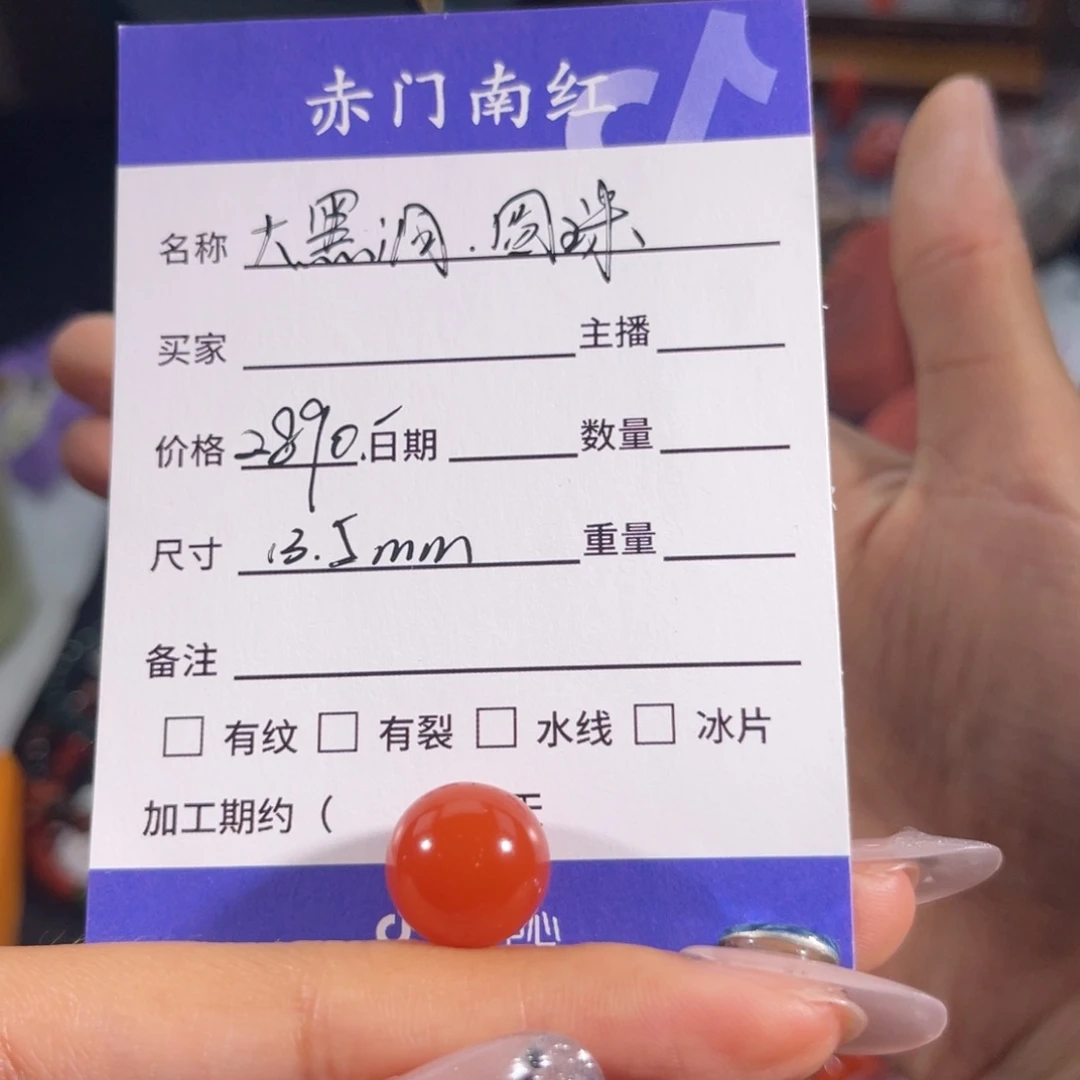 赤门南红
名称 大黑洞.圆珠
买家 主播
价格 2890. 日期 数量
尺寸 13.5mm 重量
备注
□ 有纹 □ 有裂 □ 水线 □ 冰片
加工期约（ 天
心